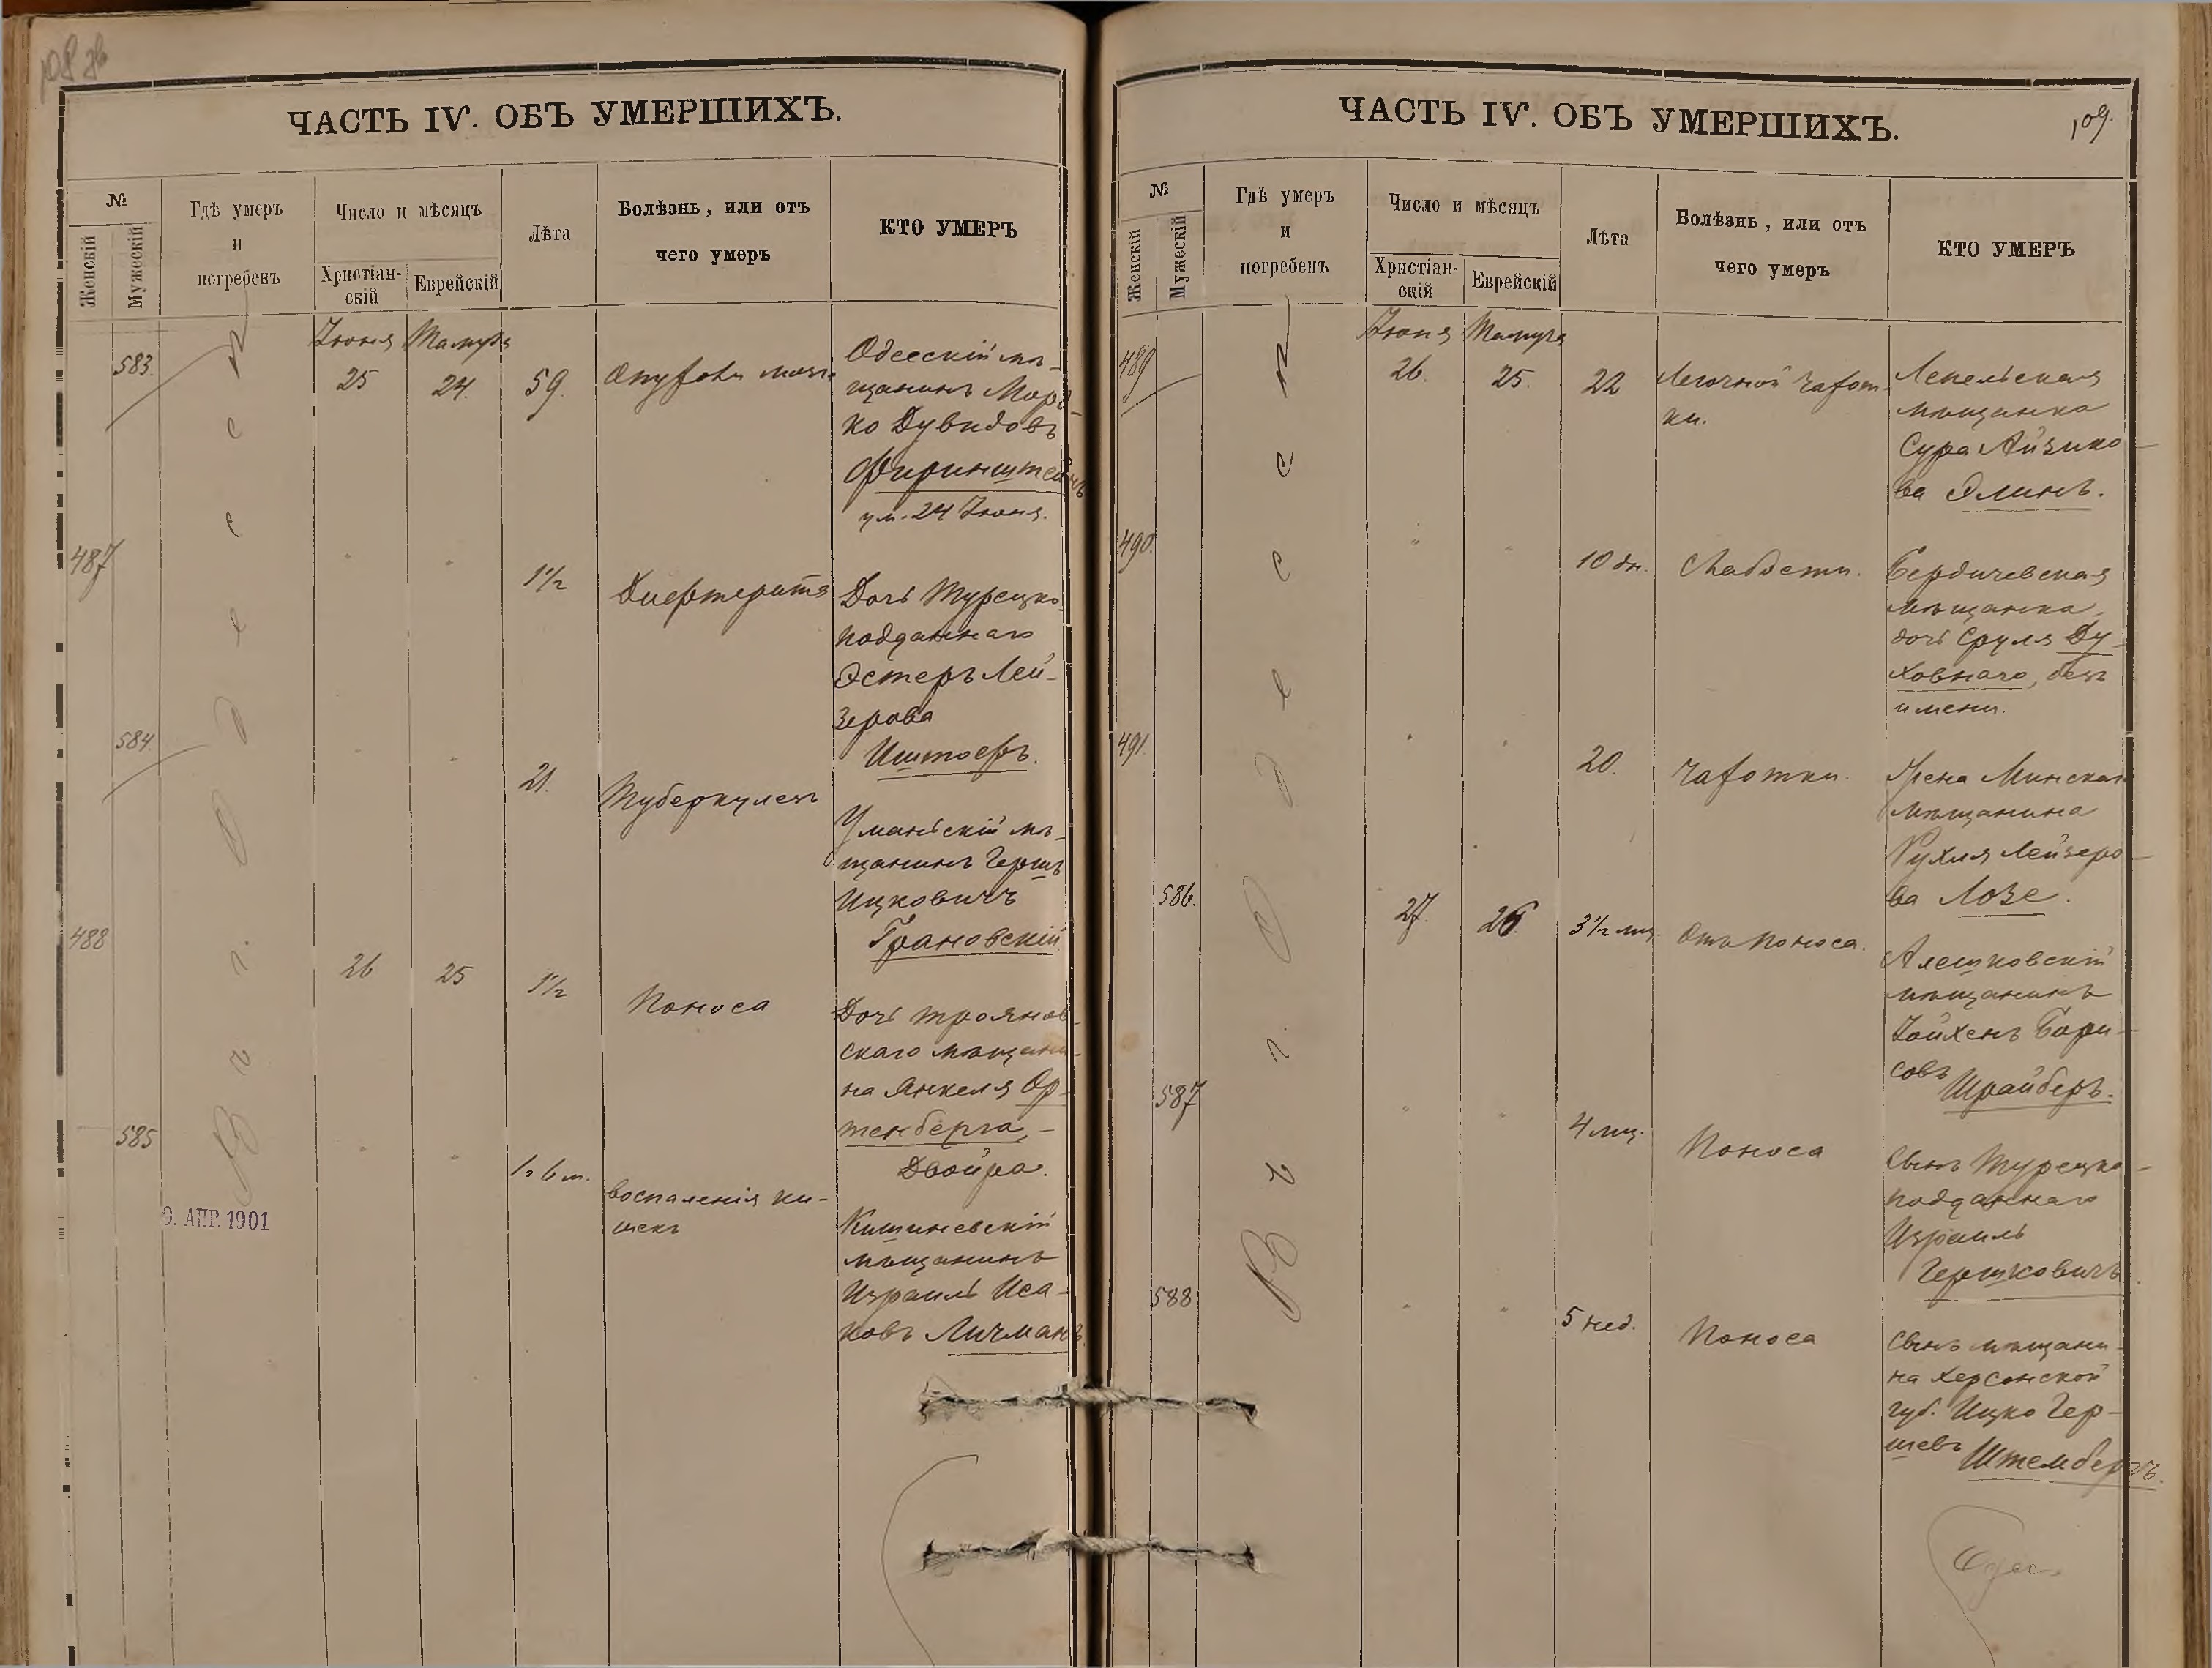 108 об
ЧАСТЬ IV. ОБЪ УМЕРШИХЪ.
№
Женскій
Мужескій
Гдѣ умеръ
и
погребенъ
Число и мѣсяцъ
Христіан-
скій
Еврейскій
Лѣта
Болѣзнь, или отъ
чего умеръ
КТО УМЕРЪ
Въ г. Одессѣ
Іюня Тамуза
583. 25 24. 59.
Одесскій мѣ-
щанинъ Мор-
ко Дувидовъ
Фиринштейнъ
ум. 24 Іюня.
487 " " 1 1/2 Дифтерита
Дочь Турецко-
подданнаго
Эстеръ Лей-
зерова
584. " " 21. Туберкулезъ
Уманьскій мѣ-
щанинъ Гершъ
Ицковичъ
Грановскій
488 26 25 1 1/2 Поноса
Дочь Троянов-
скаго мѣщани-
на Янкеля Ор-
тенберга, -
Двойра.
585 " " 1 г 6 м. воспаленія ки-
шекъ
Кишиневскій
мѣщанинъ
Израиль Иса-
ковъ Личманъ
9. АПР. 1901
ЧАСТЬ IV. ОБЪ УМЕРШИХЪ.
109.
№
Женскій
Мужескій
Гдѣ умеръ
и
погребенъ
Число и мѣсяцъ
Христіан-
скій
Еврейскій
Лѣта
Болѣзнь, или отъ
чего умеръ
КТО УМЕРЪ
Въ г. Одессѣ
Іюня Тамуза
489 26. 25. 22 Легочной чахот-
ки.
Лепельская
мѣщанка
Сура Айзико-
ва Элинъ.
490. " " 10 дн. Слабости.
Бердичевская
мѣщанка,
дочь Сруля Ду-
ховнаго, безъ
имени.
491. " " 20. Чахотки.
Жена Минскаго
мѣщанина
Рухля Лейзеро-
ва Лозе.
586. 27. 26. 3 1/2 мц. Отъ поноса.
Алешковскій
мѣщанинъ
Іойхенъ Бори-
совъ
Шрайберъ.
587 " " 4 мц. Поноса
Сынъ Турецко-
подданнаго
Израиль
Гершковичъ.
588 " " 5 нед. Поноса
Сынъ мѣщани-
на Херсонской
губ. Ицко Гер-
шевъ
Штембергъ.